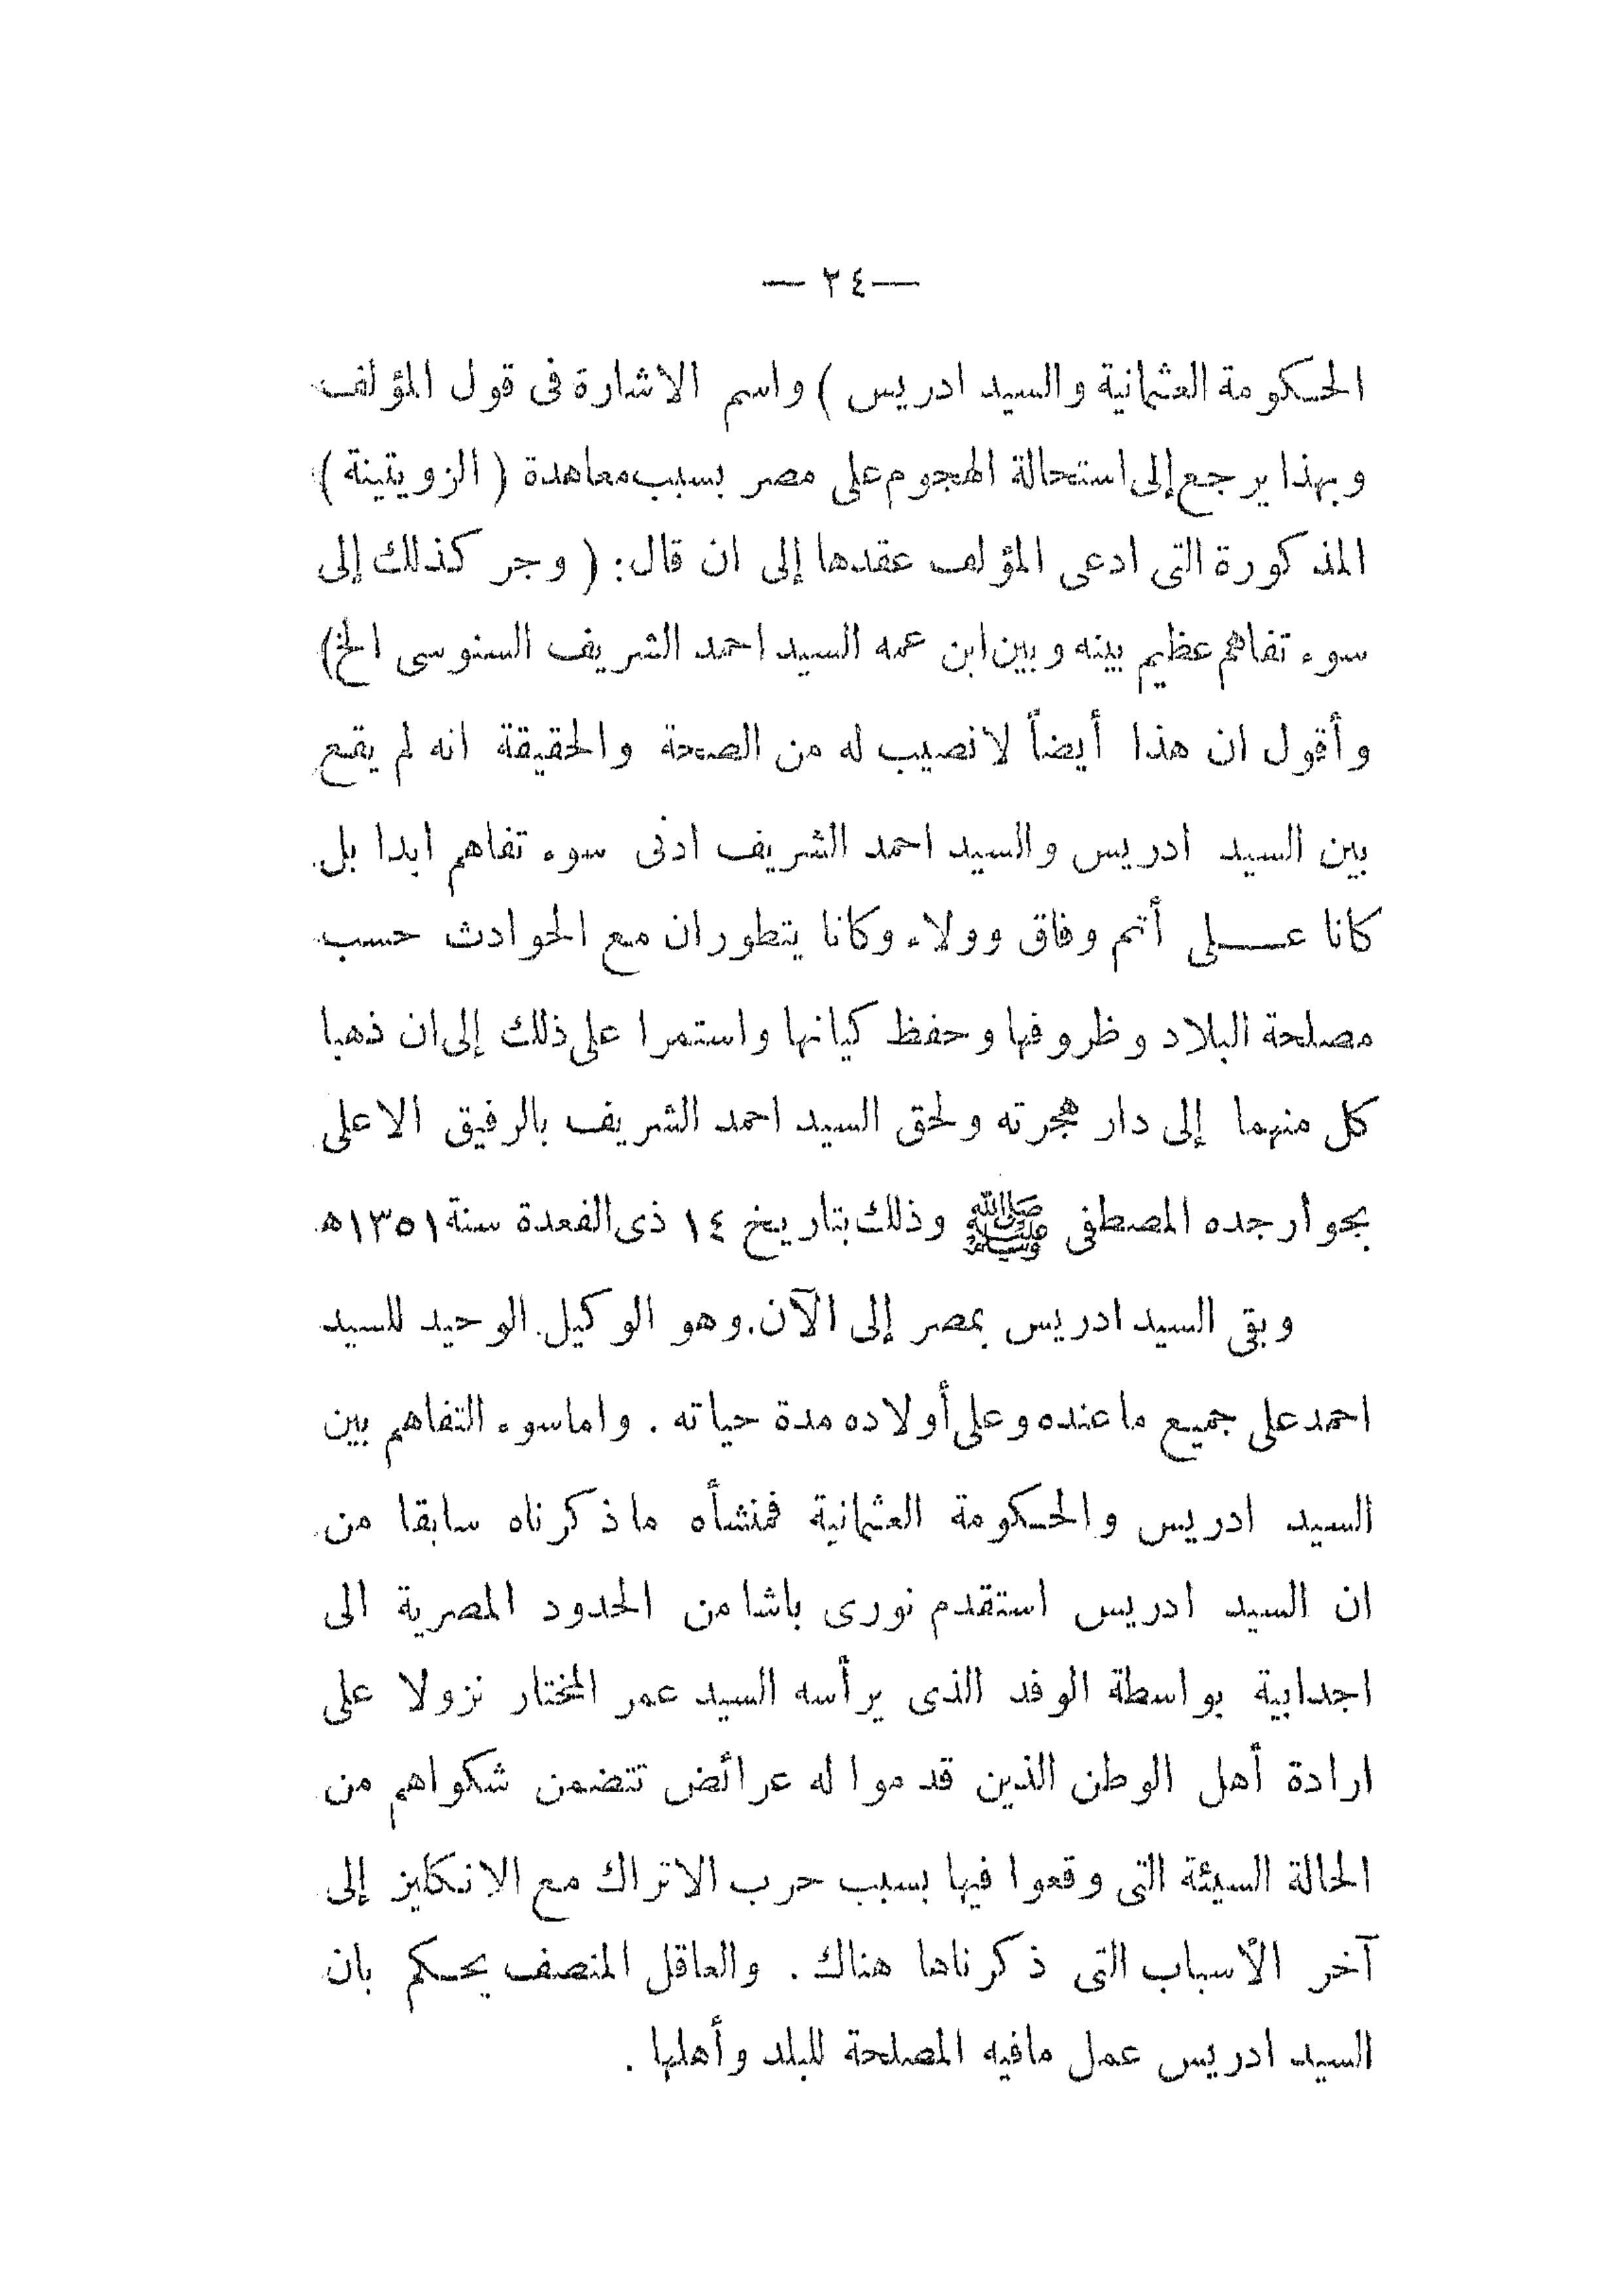 — ٢٤ —
الحكومة العثمانية والسيد ادريس ) واسم الاشارة فى قول المؤلف
وبهذا يرجع إلى استحالة الهجوم على مصر بسبب معاهدة ( الزويتينة )
المذكورة التى ادعى المؤلف عقدها إلى ان قال: ( وجر كذلك إلى
سوء تفاهم عظيم بينه وبين ابن عمه السيد احمد الشريف السنوسى الخ)
وأقول ان هذا أيضاً لا نصيب له من الصحة والحقيقة انه لم يقع
بين السيد ادريس والسيد احمد الشريف ادنى سوء تفاهم ابدا بل
كانا عـــلى أتم وفاق وولاء وكانا يتطوران مع الحوادث حسب
مصلحة البلاد وظروفها وحفظ كيانها واستمرا على ذلك إلى ان ذهبا
كل منهما إلى دار هجرته ولحق السيد احمد الشريف بالرفيق الاعلى
بجوار جده المصطفى ﷺ وذلك بتاريخ ١٤ ذى القعدة سنة ١٣٥١ه
وبقى السيد ادريس بمصر إلى الآن. وهو الوكيل الوحيد للسيد
احمد على جميع ما عنده وعلى أولاده مدة حياته . واما سوء التفاهم بين
السيد ادريس والحكومة العثمانية فمنشأه ما ذكرناه سابقا من
ان السيد ادريس استقدم نورى باشا من الحدود المصرية الى
اجدابية بواسطة الوفد الذى يرأسه السيد عمر المختار نزولا على
ارادة أهل الوطن الذين قدموا له عرائض تتضمن شكواهم من
الحالة السيئة التى وقعوا فيها بسبب حرب الاتراك مع الانكليز إلى
آخر الأسباب التى ذكرناها هناك . والعاقل المنصف يحكم بان
السيد ادريس عمل مافيه المصلحة للبلد وأهلها .